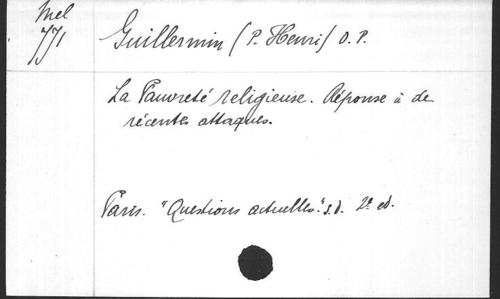 Mel
771
Guillermin (P. Henri) O.P.
La Pauvreté religieuse. Réponse à de
récentes attaques.
Paris. "Questions actuelles". s.d. 2e ed.